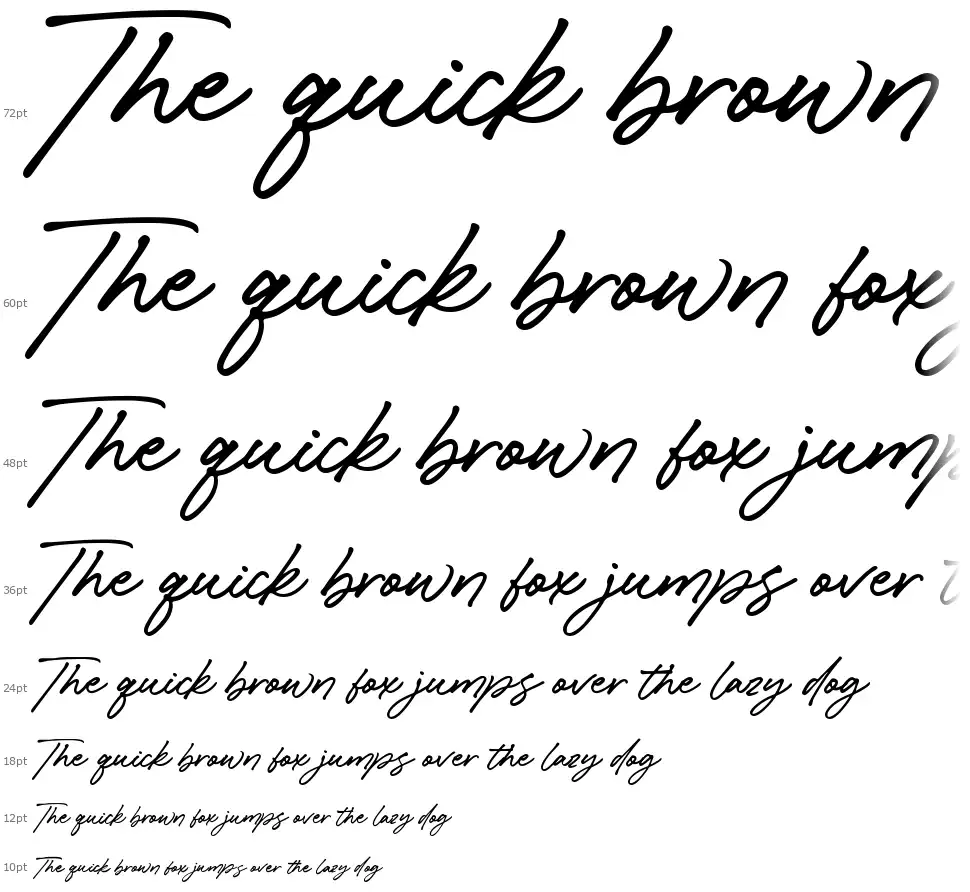 72pt The quick brown
60pt The quick brown fox
48pt The quick brown fox jump
36pt The quick brown fox jumps over
24pt The quick brown fox jumps over the lazy dog
18pt The quick brown fox jumps over the lazy dog
12pt The quick brown fox jumps over the lazy dog
10pt The quick brown fox jumps over the lazy dog